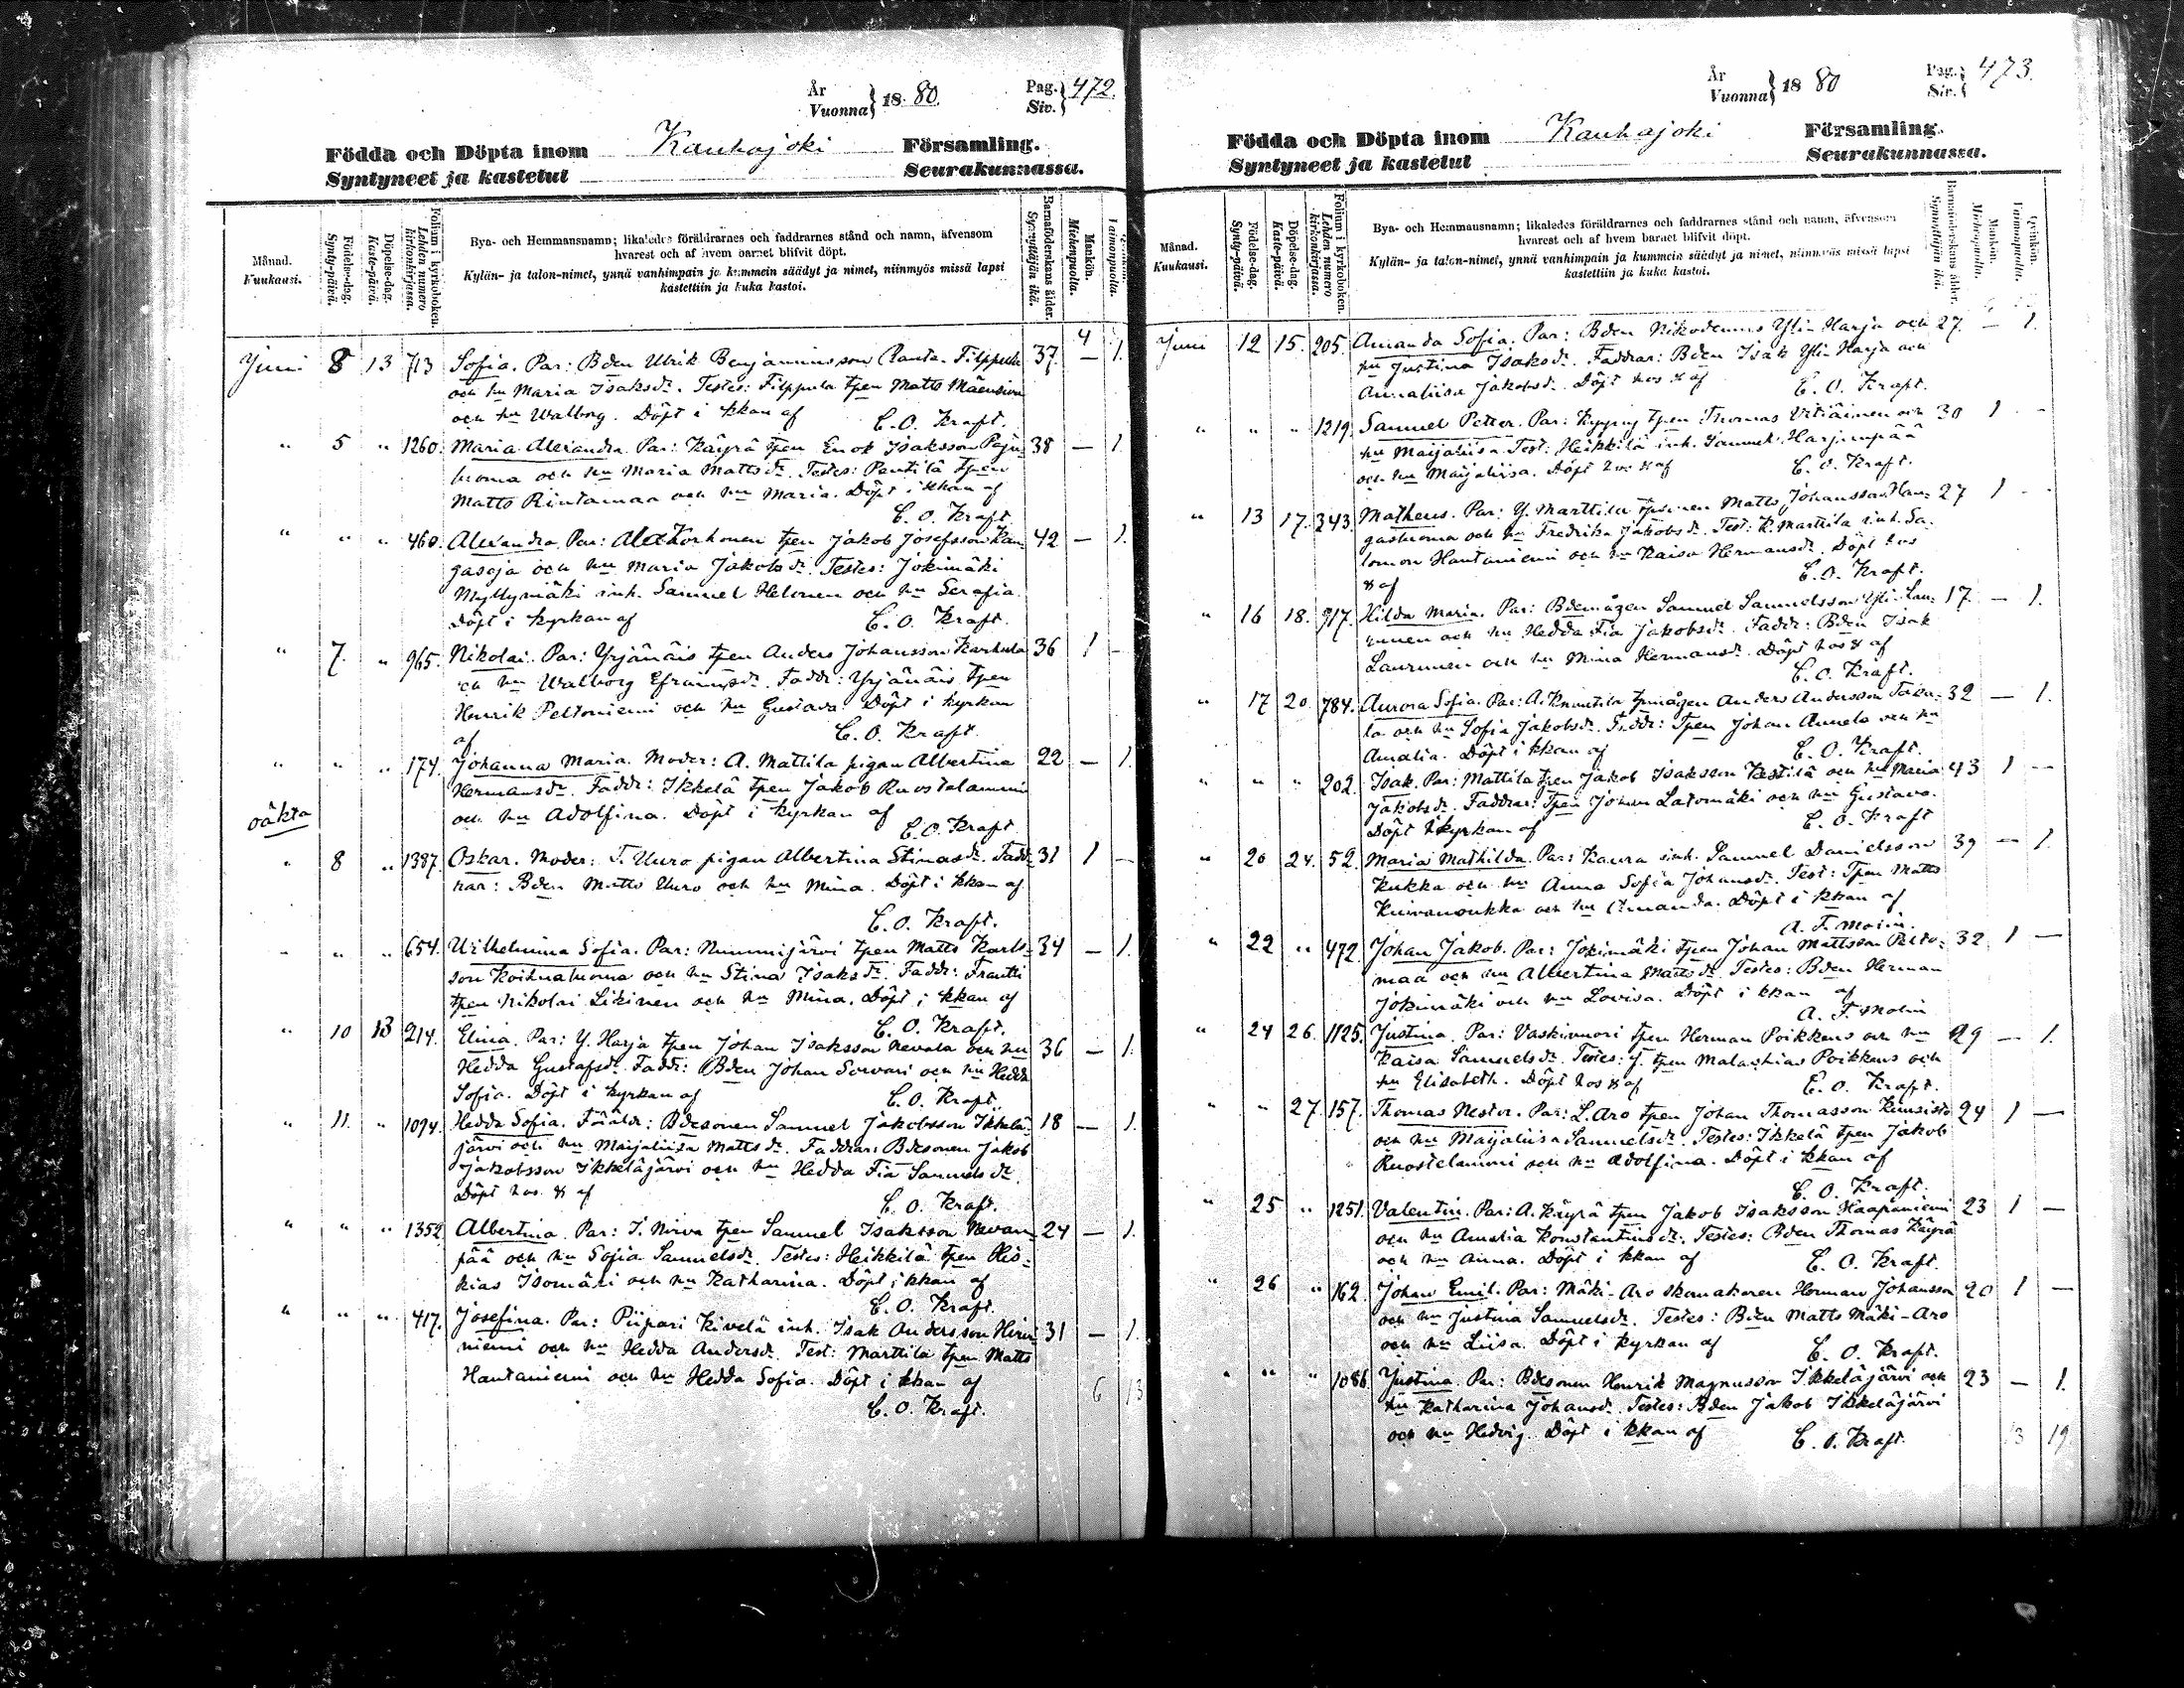 År
Vuonna } 18 80.
Pag.
Siv. } 472.
Födda och Döpta inom Kauhajoki Församling.
Syntyneet ja kastetut Seurakunnassa.
Månad.
Kuukausi.
Födelse-dag.
Synty-päivä.
Döpelse-dag.
Kaste-päivä.
Folium i kyrkoboken.
Lehden numero kirkonkirjassa.
Bya- och Hemmansnamn; likaledes föräldrarnes och faddrarnes stånd och namn, äfvensom
hvarest och af hvem barnet blifvit döpt.
Kylän- ja talon-nimet, ynnä vanhimpain ja kummein säädyt ja nimet, niinmyös missä lapsi
kastettiin ja kuka kastoi.
Barnaföderskans ålder.
Synnyttäjän ikä.
Mankön.
Miehenpuolta.
Qvinkön.
Vaimonpuolta.
4
Juni 8 13 713 Sofia. Par: Bden Ulrik Benjaminsson Filppula 37. — 1.
och hu Maria Isaksdr. Testes: Filppula tpen Matts Mäensivu
och hu Walborg. Döpt i kkan af C. O. Kraft.
" 5 " 1260. Maria Alexandra. Par: Käyrä tpen Enok Isaksson Paju- 38 — 1.
luoma och hu Maria Mattsdr. Testes: Pentilä tpen
Matts Rintamaa och hu Maria. Döpt i kkan af
C. O. Kraft.
" " " 460. Alexandra. Par: Ala Korhonen tpen Jakob Josefsson Kan- 42 — 1.
gasoja och hu Maria Jakobsdr. Testes: Jokimäki
Myllymäki inh. Samuel Helonen och hu Serafia.
Döpt i kyrkan af C. O. Kraft.
" 7. " 965. Nikolai. Par: Yrjänäis tpen Anders Johansson Karhula 36 1 —
och hu Walborg Efraimsdr. Faddr: Yrjänäis tpen
Henrik Peltoniemi och hu Gustava. Döpt i kyrkan
af C. O. Kraft.
" " " 174. Johanna Maria. Moder: A. Mattila pigan Albertina 22 — 1.
Hermansdr. Faddr: Ikkelä tpen Jakob Ruostelammi
och hu Adolfina. Döpt i kyrkan af
oäkta C. O. Kraft.
" 8 " 1387. Oskar. Moder: T. Uuro pigan Albertina Stinasdr. Fadd- 31 1 —
rar: Bden Matts Uuro och hu Mina. Döpt i kkan af
C. O. Kraft.
" " " 654. Wilhelmina Sofia. Par: Nummijärvi tpen Matts Karls- 34 — 1.
son Koivuluoma och hu Stina Isaksdr. Faddr: Frantti
tpen Nikolai Likinen och hu Mina. Döpt i kkan af
C. O. Kraft.
" 10 13 214. Elina. Par: Y. Harja tpen Johan Isaksson Nevala och hu 36 — 1.
Hedda Gustafsdr. Faddr: Bden Johan Sorvari och hu Hedda
Sofia. Döpt i kyrkan af C. O. Kraft.
" 11. " 1094. Hedda Sofia. Föräldr: Bdesonen Samuel Jakobsson Ikkelä- 18 — 1.
järvi och hu Maijaliisa Mattsdr. Faddrar: Bdesonen Jakob
Jakobsson Ikkeläjärvi och hu Hedda Fia Samuelsdr.
Döpt hos af C. O. Kraft.
" " " 1352 Albertina. Par: I. Nirva tpen Samuel Isaksson Nevan- 24 — 1.
pää och hu Sofia Samuelsdr. Testes: Heikkilä tpen His-
kias Isomäki och hu Katharina. Döpt i kkan af
C. O. Kraft.
" " " 417. Josefina. Par: Piipari Kivelä inh. Isak Andersson Hirvi- 31 — 1.
niemi och hu Hedda Andersdr. Test: Marttila tpen Matts
Hautaniemi och hu Hedda Sofia. Döpt i kkan af
C. O. Kraft.
6 13
År
Vuonna } 18 80
Pag.
Siv. } 473.
Födda och Döpta inom Kauhajoki Församling.
Syntyneet ja kastetut Seurakunnassa.
Månad.
Kuukausi.
Födelse-dag.
Synty-päivä.
Döpelse-dag.
Kaste-päivä.
Folium i kyrkoboken.
Lehden numero kirkonkirjassa.
Bya- och Hemmansnamn; likaledes föräldrarnes och faddrarnes stånd och namn, äfvensom
hvarest och af hvem barnet blifvit döpt.
Kylän- ja talon-nimet, ynnä vanhimpain ja kummein säädyt ja nimet, niinmyös missä lapsi
kastettiin ja kuka kastoi.
Barnaföderskans ålder.
Synnyttäjän ikä.
Mankön.
Miehenpuolta.
Qvinkön.
Vaimonpuolta.
Juni 12 15. 205. Amanda Sofia. Par: Bden Nikodemus Yli Harja och 27. — 1.
hu Justina Isaksdr. Faddrar: Bden Isak Yli Harja och
Annaliisa Jakobsdr. Döpt hos af C. O. Kraft.
" " " 1219. Samuel Petter. Par: Kyyny tpen Thomas och 30 1 —
hu Maijaliisa. Test: Heikkilä inh. Samuel Harjunpää
och hu Maijaliisa. Döpt hos af C. O. Kraft.
" 13 17. 343. Matheus. Par: Y. Marttila tpsonen Matts Johansson Han- 27 1 —
gasluoma och hu Fredrika Jakobsdr. Test: K. Marttila inh. Sa-
lomon Hautaniemi och hu Kaisa Hermansdr. Döpt hos
af C. O. Kraft.
" 16 18. 917. Hilda Maria. Par: Bdemågen Samuel Samuelsson Yli-Lau- 17. — 1.
runen och hu Hedda Fia Jakobsdr. Faddr: Bden Isak
Laurunen och hu Mina Hermansdr. Döpt hos af
C. O. Kraft.
" 17 20. 784. Aurora Sofia. Par: A. Knuutila tpmågen Anders Andersson 32 — 1.
och hu Sofia Jakobsdr. Faddr: Tpen Johan Annela och hu
Amalia. Döpt i kkan af C. O. Kraft.
" " " 202. Isak. Par: Mattila tpen Jakob Isaksson Kestilä och hu Maria 43 1 —
Jakobsdr. Faddrar: Tpen Johan Latomäki och hu Gustava.
Döpt i kyrkan af C. O. Kraft
" 20 24. 52. Maria Mathilda. Par: Kaura inh. Samuel Danielsson 39 — 1.
Kukka och hu Anna Sofia Johansdr. Test: Tpen Matts
och hu Amanda. Döpt i kkan af
A. F. Molin.
" 22 " 472. Johan Jakob. Par: Jokimäki tpen Johan Mattsson Pelto- 32 1 —
maa och hu Albertina Mattsdr. Testes: Bden Herman
Jokimäki och hu Lovisa. Döpt i kkan af
A. F. Molin
" 24 26. 1125. Justina. Par: Vaskivuori tpen Herman Poikkeus och hu 29 — 1.
Kaisa Samuelsdr. Testes: J. tpen Malachias Poikkeus och
hu Elisabeth. Döpt hos af C. O. Kraft.
" " 27. 157. Thomas Nestor. Par: L. Aro tpen Johan Thomasson Kuusisto 24 1 —
och hu Maijaliisa Samuelsdr. Testes: Ikkelä tpen Jakob
Ruostelammi och hu Adolfina. Döpt i kkan af
C. O. Kraft.
" 25 " 1251. Valentin. Par: A. Käyrä tpen Jakob Isaksson Haapaniemi 23 1 —
och hu Amalia Konstantinsdr. Testes: Bden Thomas Käyrä
och hu Anna. Döpt i kkan af C. O. Kraft.
" 26 " 162. Johan Emil. Par: Mäki-Aro skomakaren Herman Johansson 20 1 —
och hu Justina Samuelsdr. Testes: Bden Matts Mäki-Aro
och hu Liisa. Döpt i kyrkan af C. O. Kraft.
" " " 1086. Justina. Par: Bdesonen Henrik Magnusson Ikkeläjärvi och 23 — 1.
hu Katharina Johansdr. Testes: Bden Jakob Ikkeläjärvi
och hu Hedvig. Döpt i kkan af C. O. Kraft.
13 19